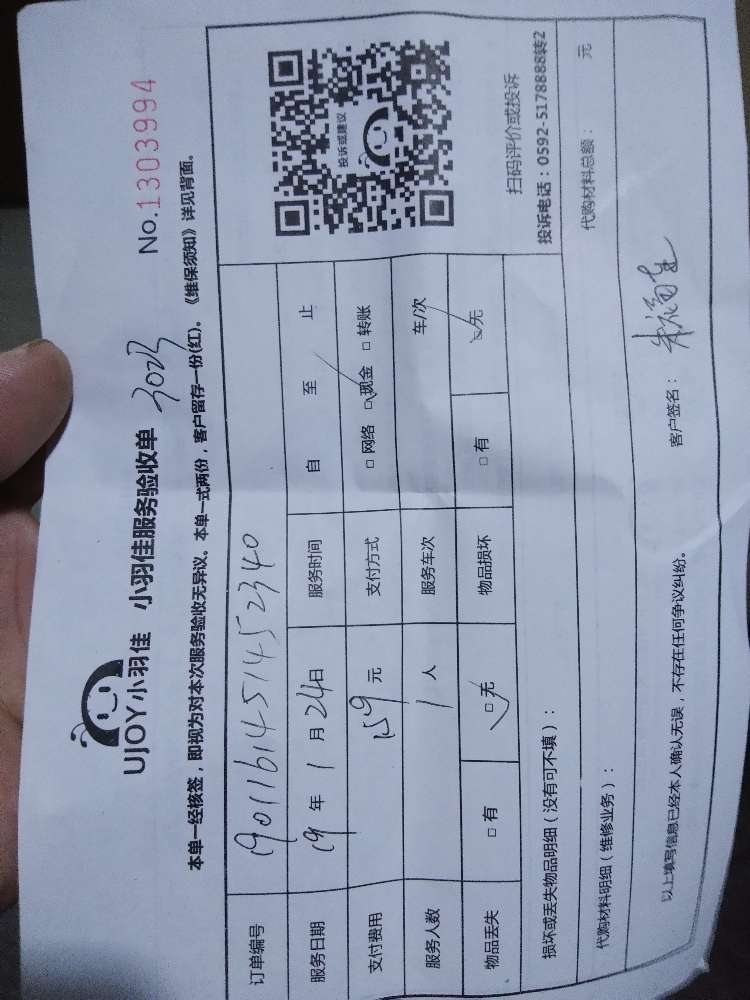 UJOY小羽佳 小羽佳服务验收单 No.1303994
本单一经核签，即视为对本次服务验收无异议。本单一式两份，客户留存一份(红)。《维保须知》详见背面。
订单编号 1901161451452340
服务日期 19年1月24日 服务时间 自 至 止
支付费用 159元 支付方式 □网络 □现金 □转账
服务人数 1人 服务车次 车/次
物品丢失 □有 □无 物品损坏 □有 □无
投诉或建议
扫码评价或投诉
投诉电话：0592-5178888转2
损坏或丢失物品明细（没有可不填）：
代购材料明细（维修业务）： 代购材料总额： 元
以上填写信息已经本人确认无误，不存在任何争议纠纷。 客户签名：